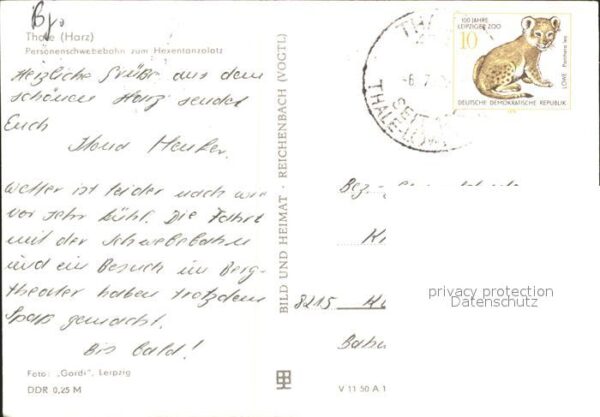 Thale (Harz)
Personenschwebebahn zum Hexentanzplatz
Herzliche Grüße aus dem
schönen Harz sendet
Euch
Wetter ist leider nach wie
vor sehr kühl. Die Fahrt
mit der Schwebebahn
und ein Besuch im Berg-
theater haben trotzdem
Spaß gemacht.
Bis bald!
Foto: „Gardi", Leipzig
DDR 0,25 M
BILD UND HEIMAT · REICHENBACH (VOGTL)
V 11 50 A 1
100 JAHRE
LEIPZIGER ZOO
10
LÖWE Panthera leo
DEUTSCHE DEMOKRATISCHE REPUBLIK
8215
privacy protection
Datenschutz